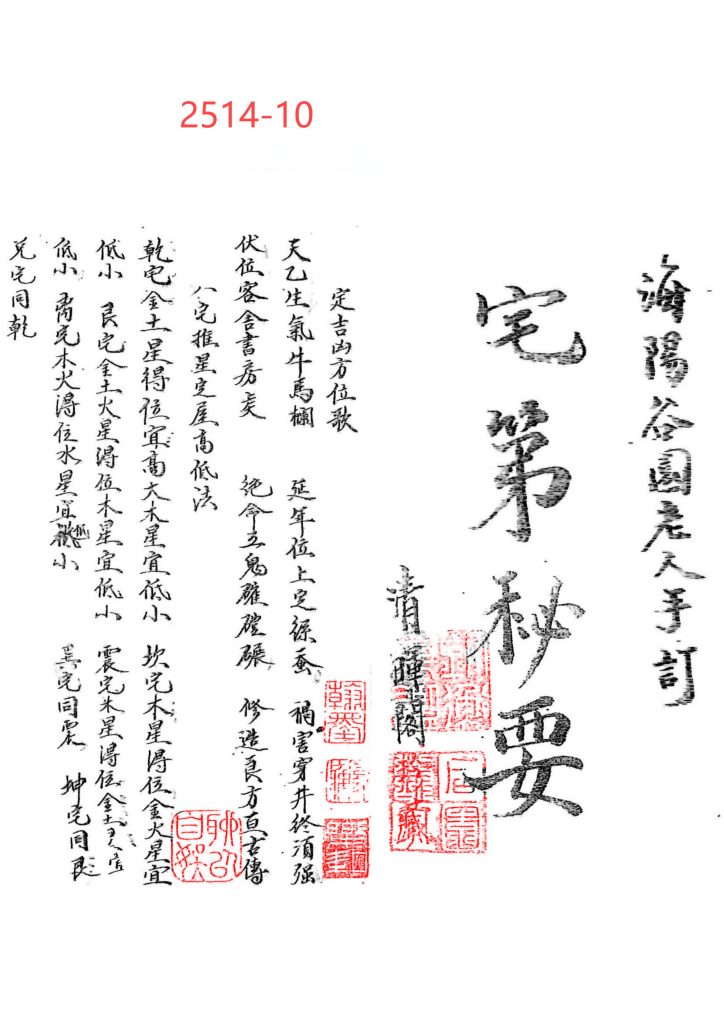 2514-10
海陽谷園老人手訂
宅第秘要
清暉閣
定吉凶方位歌
天乙生氣牛馬欄 延年位上定蚕 禍害穿井終須强
伏位客舍書房矣 絶命五鬼碓磑碾 修造良方直古傳
八宅推星定屋高低法
乾宅金土星得位宜高大木星宜低小 坎宅木星得位金火星宜
低小 艮宅金土火星得位木星宜低小 震宅木星得位金土星宜
低小 离宅木火得位水星宜低小 巽宅同震 坤宅同艮
兌宅同乾
翰墨